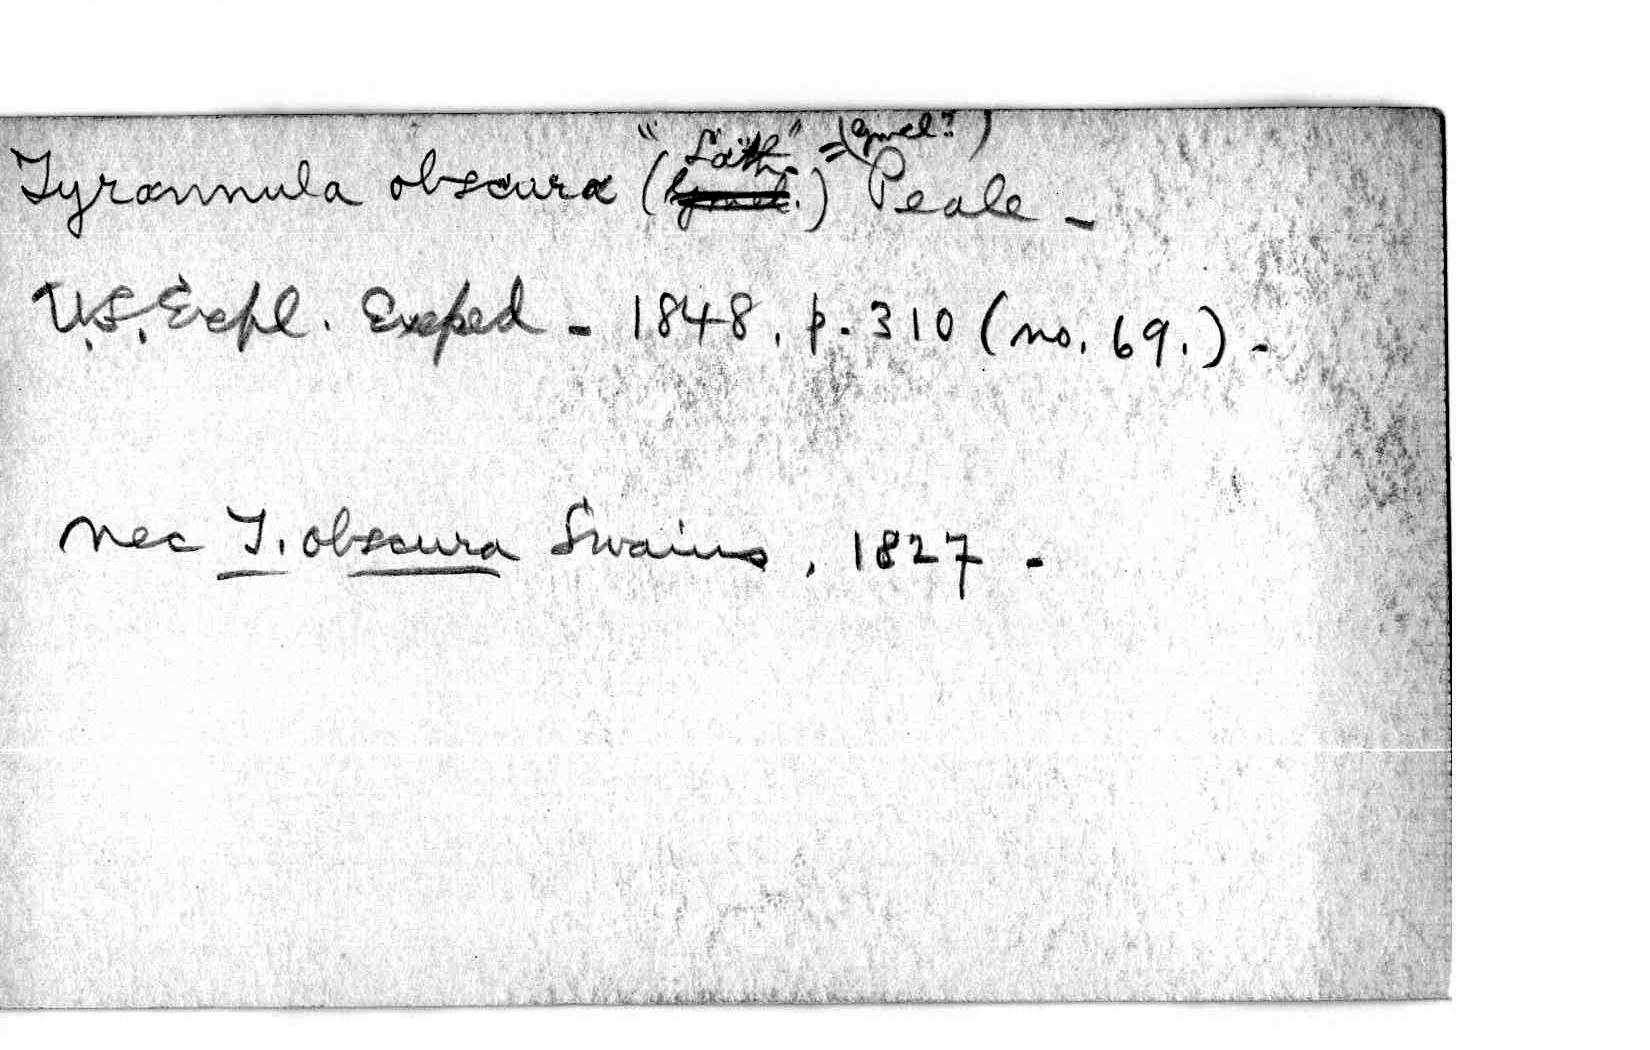 Tyrannula obscura ("Lath." Gmel.) = (Gmel?) Peale -
U.S. Expl. Exped - 1848, p. 310 (no. 69.) -
nec T. obscura Swains, 1827 -